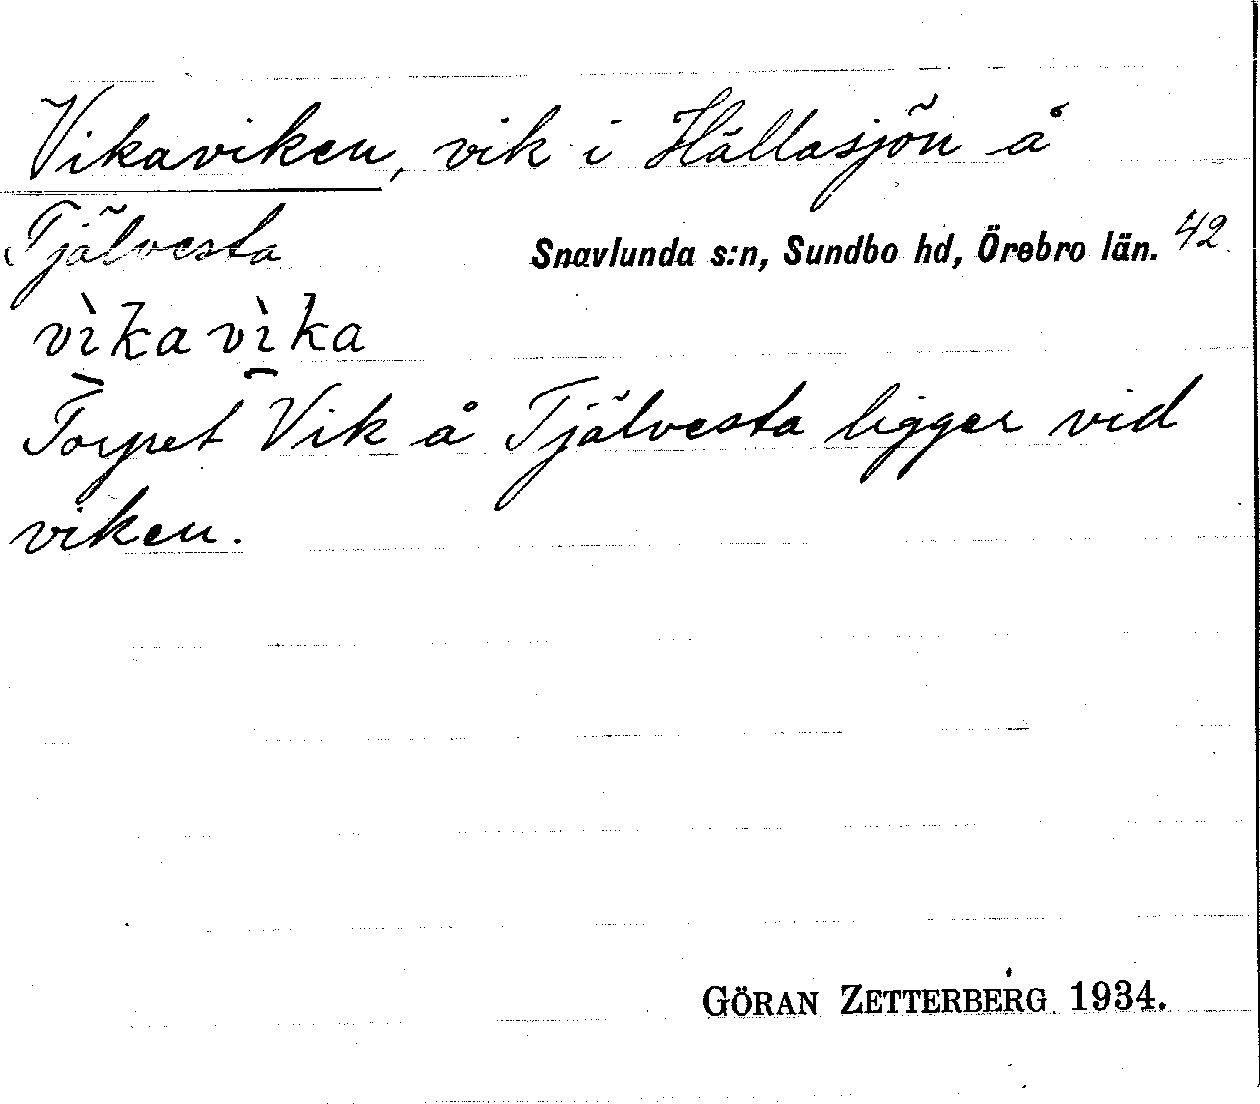 Vikaviken, vik i Hällasjön å
Tjälvesta Snavlunda s:n, Sundbo hd, Örebro län. 42
vìkavìka
Torpet Vik å Tjälvesta ligger vid
viken.
GÖRAN ZETTERBERG 1934.